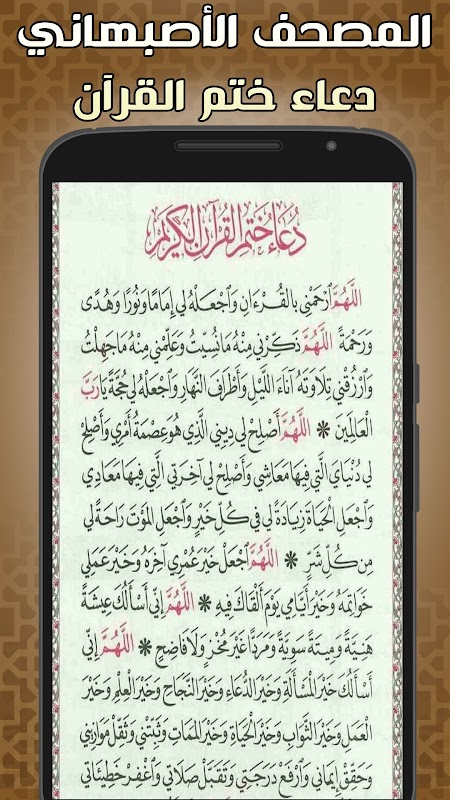 المصحف الأصبهاني
دعاء ختم القرآن
دُعَاءُ خَتْمِ القُرْآنِ الكَرِيمِ
اللَّهُمَّ ٱرْحَمْنِي بالقُرْءَانِ وَٱجْعَلهُ لِي إِمَامًا وَنُورًا وَهُدًى
وَرَحْمَةً اللَّهُمَّ ذَكِّرْنِي مِنْهُ مَانُسِّيتُ وَعَلِّمْنِي مِنْهُ مَاجَهِلْتُ
وَٱرْزُقْنِي تِلَاوَتَهُ آنَاءَ اللَّيْلِ وَأَطْرَافَ النَّهَارِ وَٱجْعَلْهُ لِي حُجَّةً يَا رَبَّ
الْعَالَمِينَ * اللَّهُمَّ أَصْلِحْ لِي دِينِي الَّذِي هُوَ عِصْمَةُ أَمْرِي وَأَصْلِحْ
لِي دُنْيَايَ الَّتِي فِيهَا مَعَاشِي وَأَصْلِحْ لِي آخِرَتِي الَّتِي فِيهَا مَعَادِي
وَٱجْعَلِ الْحَيَاةَ زِيَادَةً لِي فِي كُلِّ خَيْرٍ وَٱجْعَلِ الْمَوْتَ رَاحَةً لِي
مِن كُلِّ شَرٍّ * اللَّهُمَّ ٱجْعَلْ خَيْرَ عُمْرِي آخِرَهُ وَخَيْرَ عَمَلِي
خَوَاتِمَهُ وَخَيْرَ أَيَّامِي يَوْمَ أَلْقَاكَ فِيهِ * اللَّهُمَّ إِنِّي أَسْأَلُكَ عِيشَةً
هَنِيَّةً وَمِيتَةً سَوِيَّةً وَمَرَدًّا غَيْرَ مُخْزٍ وَلَا فَاضِحٍ * اللَّهُمَّ إِنِّي
أَسْأَلُكَ خَيْرَ الْمَسْأَلَةِ وَخَيْرَ الدُّعَاءِ وَخَيْرَ النَّجَاحِ وَخَيْرَ الْعِلْمِ وَخَيْرَ
الْعَمَلِ وَخَيْرَ الثَّوَابِ وَخَيْرَ الْحَيَاةِ وَخَيْرَ الْمَمَاتِ وَثَبِّتْنِي وَثَقِّلْ مَوَازِينِي
وَحَقِّقْ إِيمَانِي وَٱرْفَعْ دَرَجَتِي وَتَقَبَّلْ صَلَاتِي وَٱغْفِرْ خَطِيئَاتِي